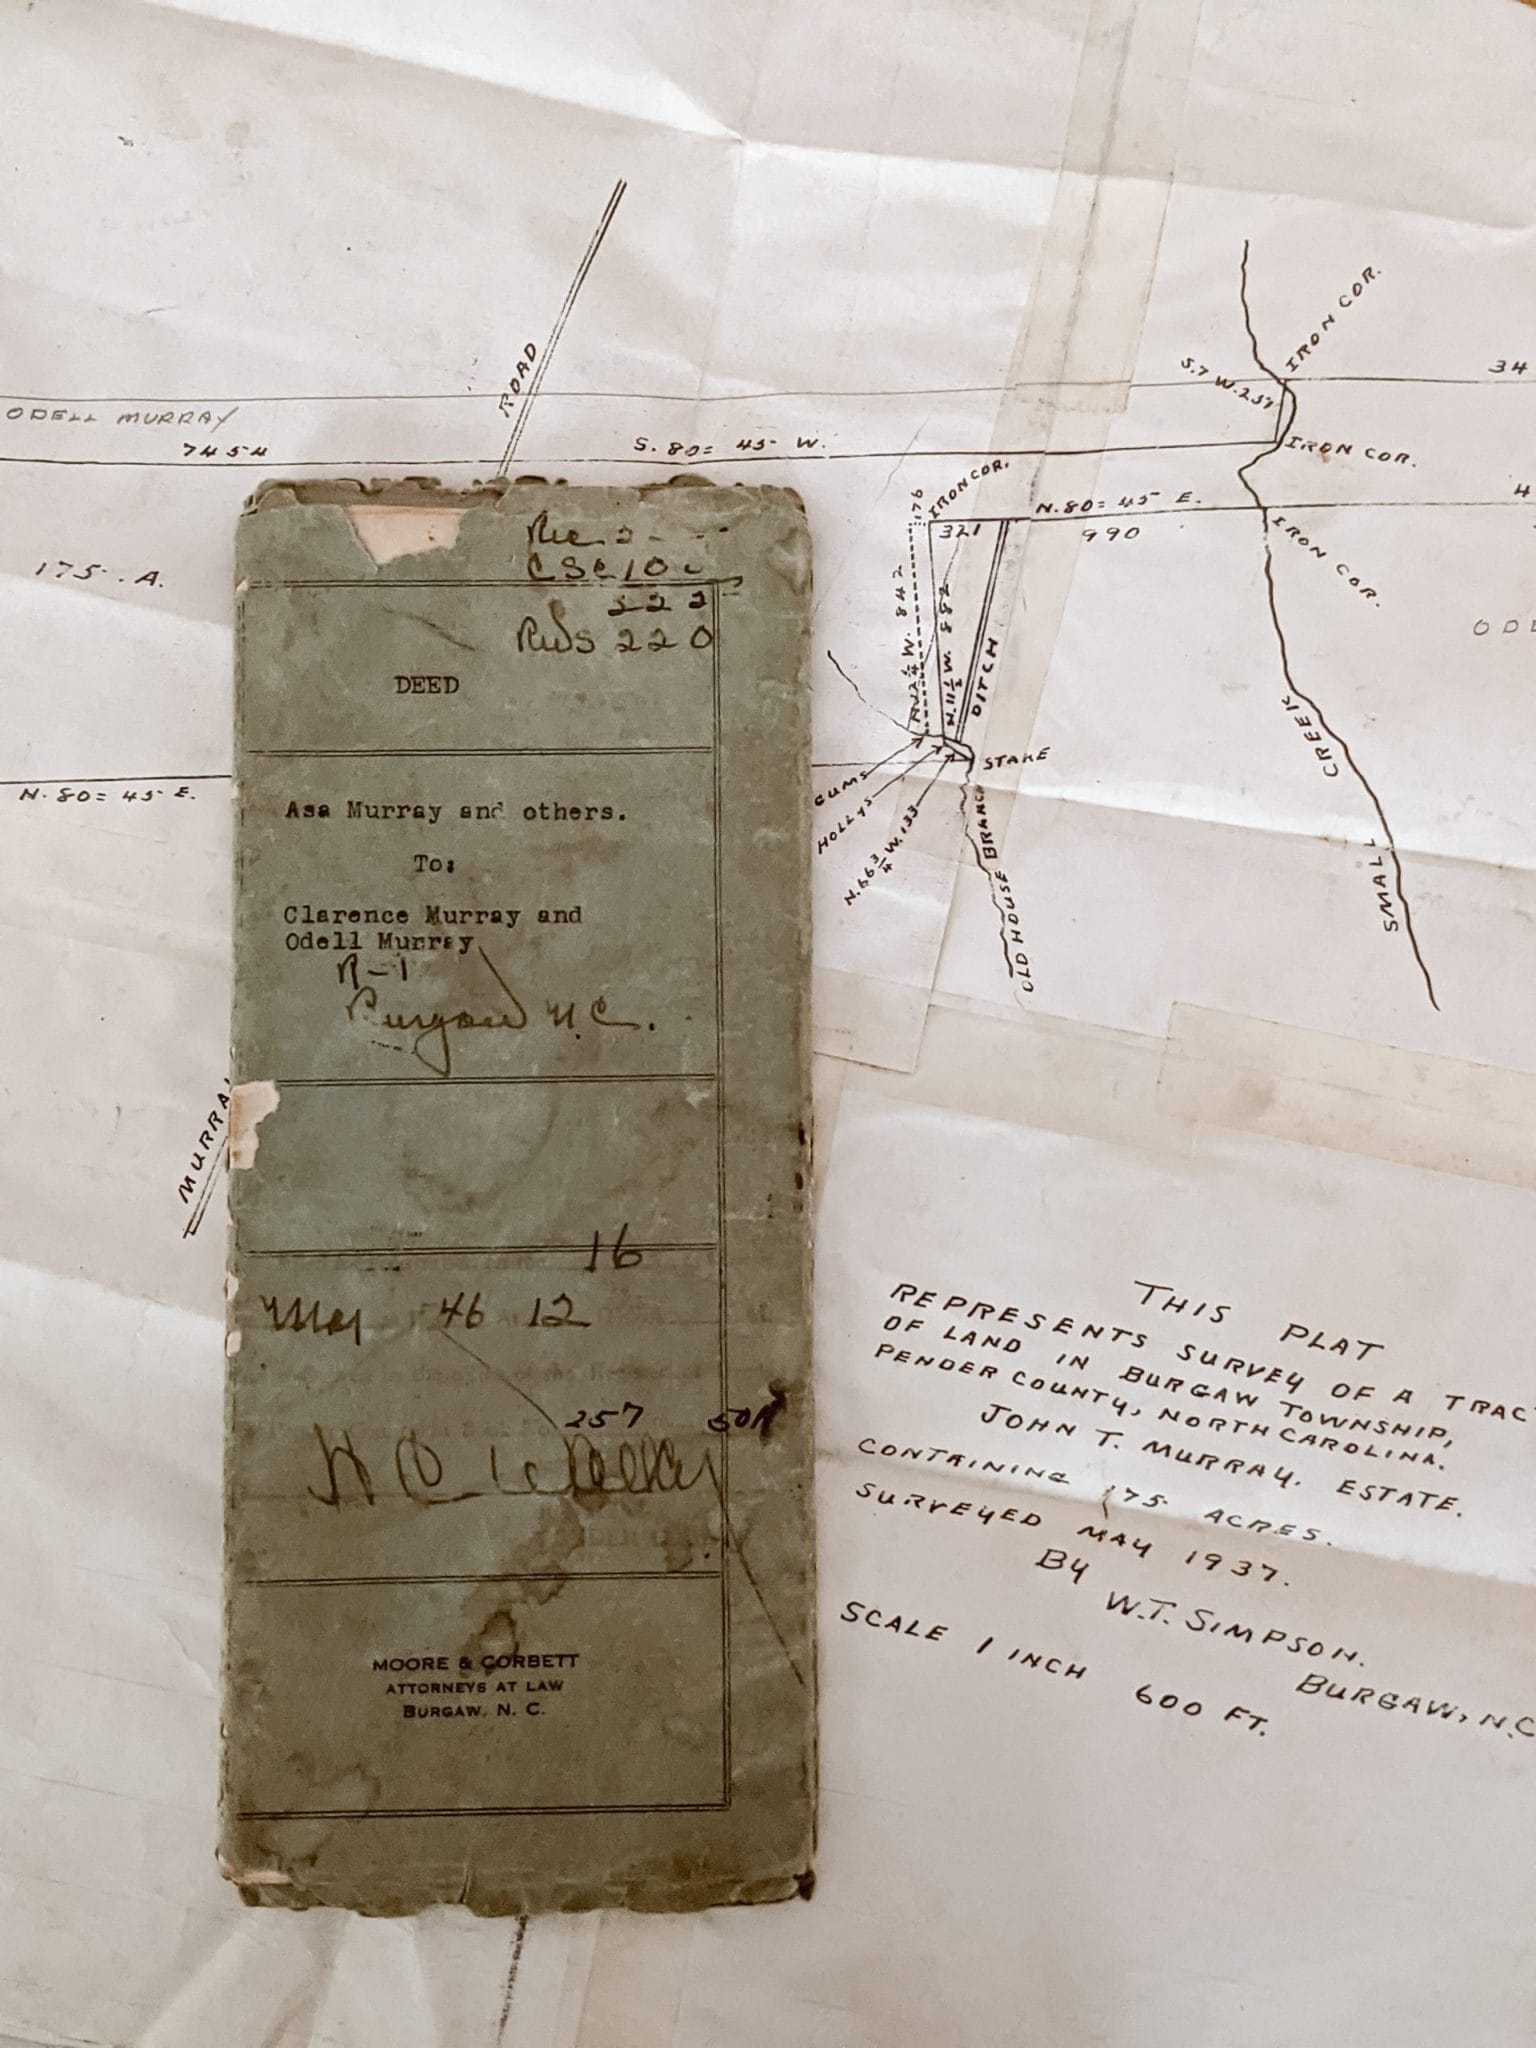 ROAD
ODELL MURRAY
7454
S. 80= 45 W.
S. 7 W. 257
IRON COR.
34
IRON COR.
IRON COR.
176
321
N. 80= 45 E.
990
4
IRON COR.
175. A.
842
N. 11 1/2 W. 882
DITCH
ODE
STAKE
GUMS
HOLLYS
N. 66 3/4 W. 133
OLD HOUSE BRANCH
SMALL CREEK
N. 80= 45 E.
MURRA
222
220
DEED
Asa Murray and others.
To:
Clarence Murray and
Odell Murray
R-1
Burgaw N.C.
16
May 46 12
257 501
MOORE & CORBETT
ATTORNEYS AT LAW
BURGAW, N. C.
THIS PLAT
REPRESENTS SURVEY OF A TRAC
OF LAND IN BURGAW TOWNSHIP,
PENDER COUNTY, NORTH CAROLINA.
JOHN T. MURRAY. ESTATE.
CONTAINING 175 ACRES.
SURVEYED MAY 1937.
By
W.T. SIMPSON.
BURGAW, N.C
SCALE 1 INCH 600 FT.